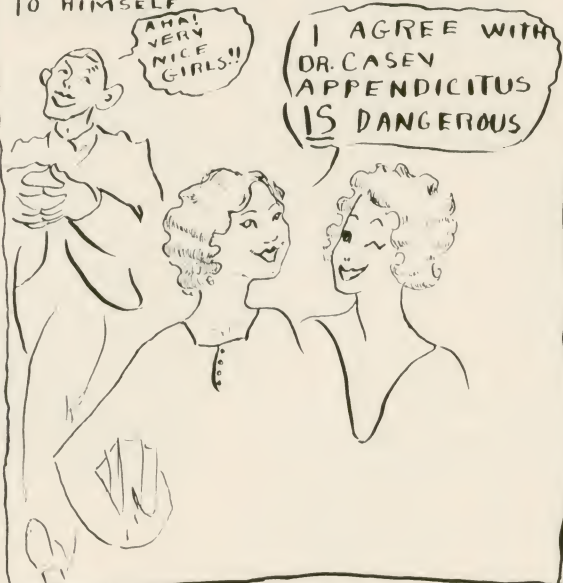 TO HIMSELF
AHA!
VERY
NICE
GIRLS!!
I AGREE WITH
DR. CASEY
APPENDICITUS
IS DANGEROUS